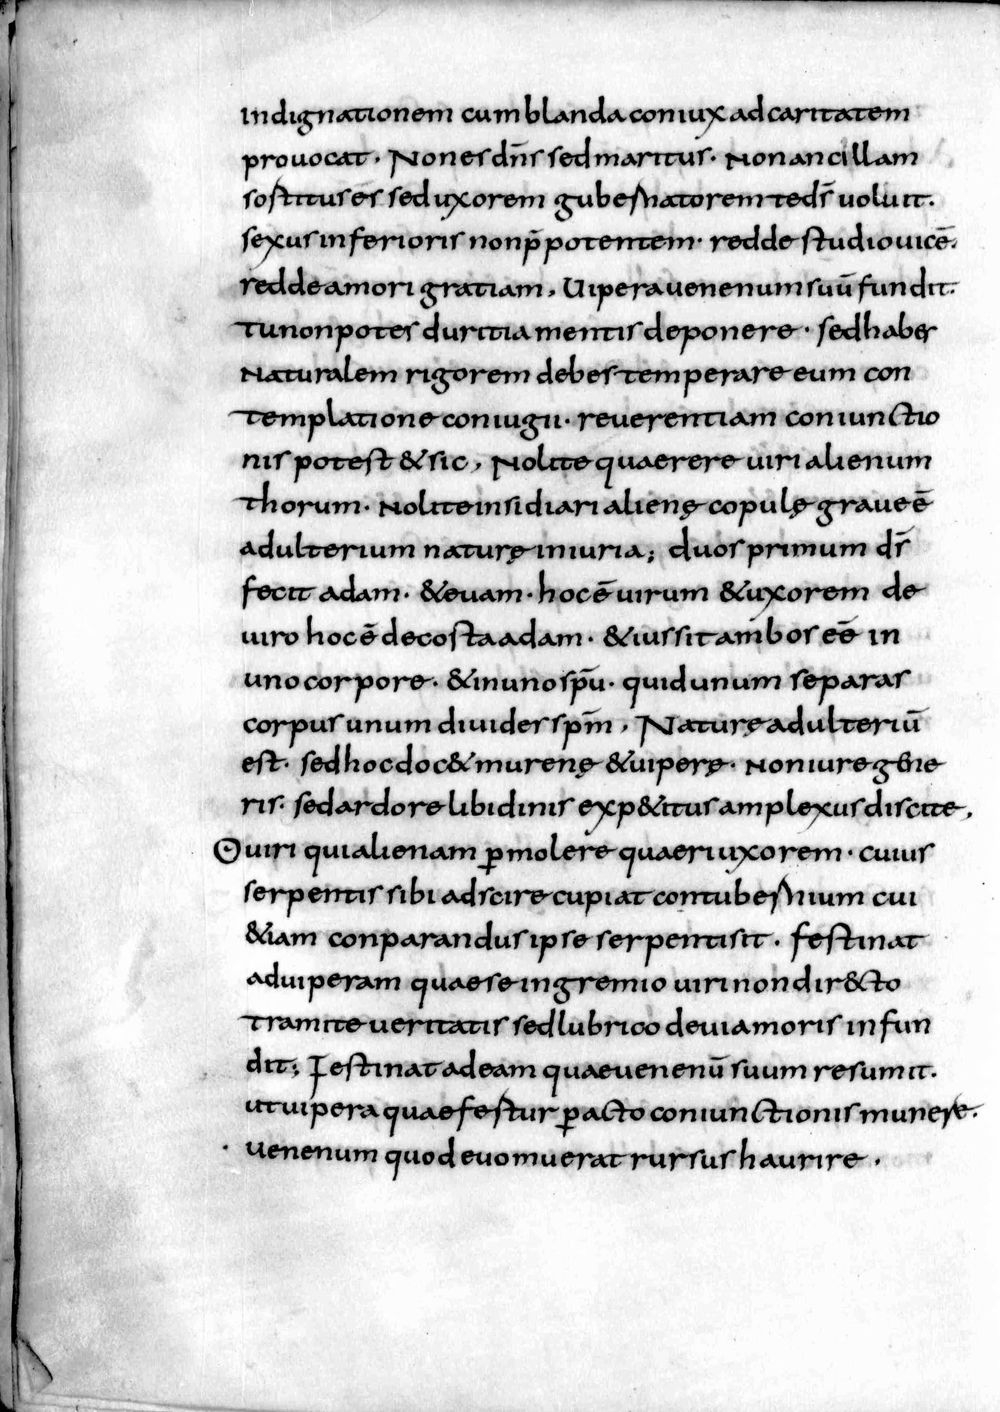 indignationem cum blanda coniux ad caritatem
prouocat. Non es dn̄s sed maritus. Non ancillam
sostitus ēs sed uxorem gubernatorem te ds̄ uoluit.
sexus inferioris non p̄potentem. redde studio uicē.
redde amori gratiam, Uipera uenenum suū fundit.
tu non potes duritia mentis deponere. sed habes
Naturalem rigorem debes temperare eum con
templatione coniugii. reuerentiam coniunctio
nis potest & sic, Nolite quaerere uiri alienum
thorum. Nolite insidiari alienę copulę graue ē
adulterium naturę iniuria; duos primum ds̄
fecit adam. & euam. hoc ē uirum & uxorem de
uiro hoc ē de costa adam. & iussit ambos eē in
uno corpore. & in uno spū. quid unum separas
corpus unum diuides spm̄, Naturę adulteriū
est. sed hoc doc& murenę & uiperę. Non iure gene
ris. sed ardore libidinis exp&itus amplexus discite,
O uiri qui alienam ꝑmolere quaeri uxorem. cuius
serpentis sibi adscire cupiat contubernium cui
&iam conparandus ipse serpenti sit. festinat
ad uiperam quae se in gremio uiri non dir&cto
tramite ueritatis sed lubrico deui amoris infun
dit; Festinat ad eam quae uenenū suum resumit.
ut uipera quae fertur ꝑacto coniunctionis munere.
uenenum quod euomuerat rursus haurire.